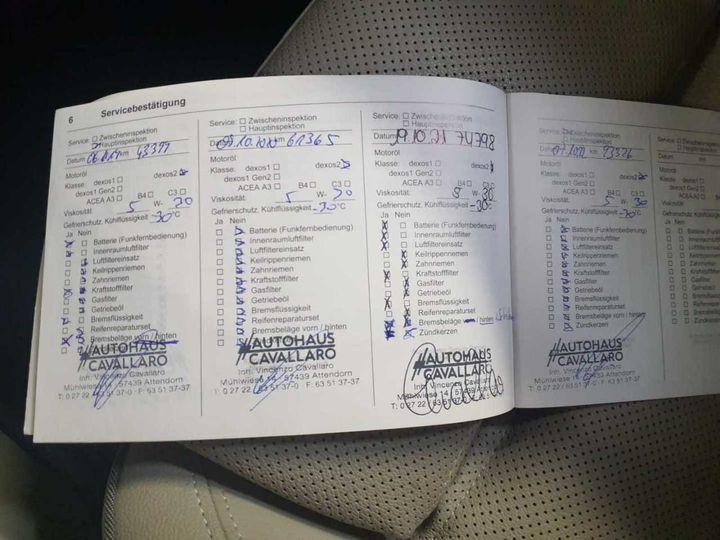 6 Servicebestätigung
Service: Zwischeninspektion
Hauptinspektion
Datum km 43399
Motoröl
Klasse: dexos1 dexos2
dexos1 Gen2
ACEA A3 B4 C3
Viskosität: 5 W- 30
Gefrierschutz, Kühlflüssigkeit -30 °C
Ja Nein
Batterie (Funkfernbedienung)
Innenraumluftfilter
Luftfiltereinsatz
Keilrippenriemen
Zahnriemen
Kraftstofffilter
Gasfilter
Getriebeöl
Bremsflüssigkeit
Reifenreparaturset
Bremsbeläge vorn / hinten
AUTOHAUS
CAVALLARO
Inh. Vincenzo Cavallaro
Mühlwiese 14 57439 Attendorn
T: 0 27 22 / 63 51 37-0 F: 63 51 37-37
Service: Zwischeninspektion
Hauptinspektion
61365
Motoröl
Klasse: dexos1 dexos2
dexos1 Gen2
ACEA A3 B4 C3
Viskosität: 5 W- 30
Gefrierschutz, Kühlflüssigkeit -30 °C
Ja Nein
Batterie (Funkfernbedienung)
Innenraumluftfilter
Luftfiltereinsatz
Keilrippenriemen
Zahnriemen
Kraftstofffilter
Gasfilter
Getriebeöl
Bremsflüssigkeit
Reifenreparaturset
Bremsbeläge vorn / hinten
Zündkerzen
AUTOHAUS
CAVALLARO
Inh. Vincenzo Cavallaro
Mühlwiese 14 57439 Attendorn
T: 0 27 22 / 63 51 37-0 F: 63 51 37-37
Service: Zwischeninspektion
Hauptinspektion
Datum 19.10.21 74798
Motoröl
Klasse: dexos1 dexos2
dexos1 Gen2
ACEA A3 B4 C3
Viskosität: 5 W- 30
Gefrierschutz, Kühlflüssigkeit -30 °C
Ja Nein
Batterie (Funkfernbedienung)
Innenraumluftfilter
Luftfiltereinsatz
Keilrippenriemen
Zahnriemen
Kraftstofffilter
Gasfilter
Getriebeöl
Bremsflüssigkeit
Reifenreparaturset
Bremsbeläge / hinten
Zündkerzen
AUTOHAUS
CAVALLARO
Inh. Vincenzo Cavallaro
Mühlwiese 14 57439 Attendorn
T: 0 27 22 / 63 51 37-0
Service: Zwischeninspektion
Hauptinspektion
Datum km
Motoröl
Klasse: dexos1 dexos2
dexos1 Gen2
ACEA A3 B4 C3
Viskosität: 5 W- 30
Gefrierschutz, Kühlflüssigkeit -30 °C
Ja Nein
Batterie (Funkfernbedienung)
Innenraumluftfilter
Luftfiltereinsatz
Keilrippenriemen
Zahnriemen
Kraftstofffilter
Gasfilter
Getriebeöl
Bremsflüssigkeit
Reifenreparaturset
Bremsbeläge vorn / hinten
Zündkerzen
AUTOHAUS
CAVALLARO
Inh. Vincenzo Cavallaro
Attendorn
T: 0 27 22 / 63 51 37-0 F: 63 51 37-37
Service:
Datum
Motoröl
Klasse:
Viskosität:
Gefrierschutz, Kühl
Ja Nein